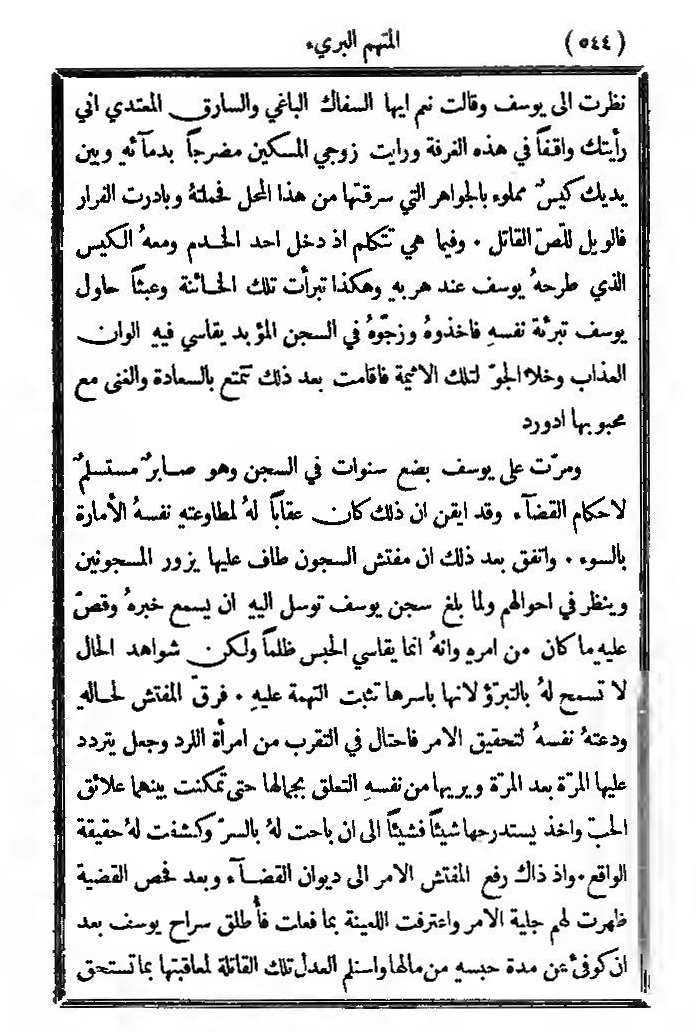 (٥٤٤) المتهم البريء
نظرت الى يوسف وقالت نعم ايها السفاك الباغي والسارق المعتدي اني
رأيتك واقفاً في هذه الغرفة ورايت زوجي المسكين مضرجاً بدمآئهِ وبين
يديك كيسٌ مملوء بالجواهر التي سرقتها من هذا المحل فحملتهُ وبادرت الفرار
فالويل للّصّ القاتل ٠ وفيما هي تتكلم اذ دخل احد الخدم ومعهُ الكيس
الذي طرحهُ يوسف عند هربهِ وهكذا تبرأت تلك الخائنة وعبثاً حاول
يوسف تبرئة نفسهِ فاخذوهُ وزجّوهُ في السجن المؤبد يقاسي فيهِ الوان
العذاب وخلا الجوّ لتلك الاثيمة فاقامت بعد ذلك تتمتع بالسعادة والغنى مع
محبوبها ادورد
ومرّت على يوسف بضع سنوات في السجن وهو صابرٌ مستسلمٌ
لاحكام القضآء وقد ايقن ان ذلك كان عقاباً لهُ لمطاوعتهِ نفسهُ الأمارة
بالسوء ٠ واتفق بعد ذلك ان مفتش السجون طاف عليها يزور المسجونين
وينظر في احوالهم ولما بلغ سجن يوسف توسل اليهِ ان يسمع خبرهُ وقصّ
عليهِ ما كان من امرهِ وانهُ انما يقاسي الحبس ظلماً ولكن شواهد الحال
لا تسمح لهُ بالتبرّؤ لانها باسرها تثبت التهمة عليهِ ٠ فرقّ المفتش لحالهِ
ودعتهُ نفسهُ لتحقيق الامر فاحتال في التقرب من امرأة اللرد وجعل يتردد
عليها المرّة بعد المرّة ويريها من نفسهِ التعلق بجمالها حتى تمكنت بينهما علائق
الحبّ واخذ يستدرجها شيئاً فشيئاً الى ان باحت لهُ بالسرّ وكشفت لهُ حقيقة
الواقع ٠ واذ ذاك رفع المفتش الامر الى ديوان القضآء وبعد فحص القضية
ظهرت لهم جلية الامر واعترفت اللعينة بما فعلت فأُطلق سراح يوسف بعد
ان كوفئ عن مدة حبسهِ من مالها واستلم العدل تلك القاتلة لمعاقبتها بما تستحق